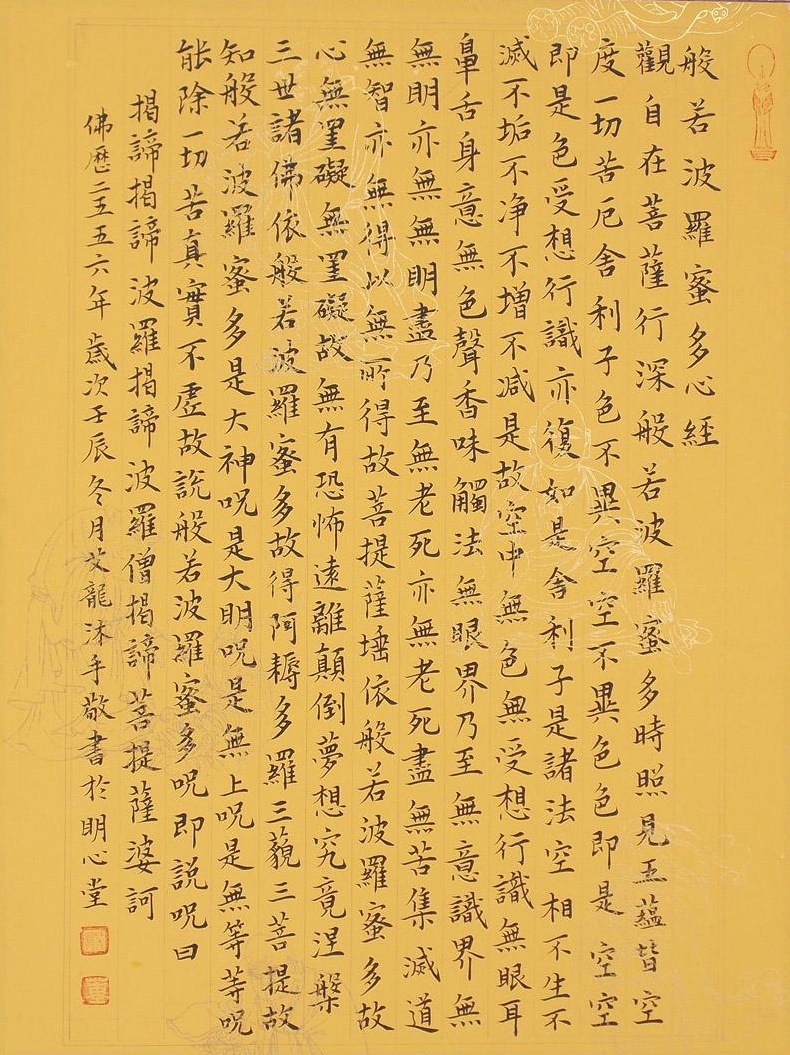 般若波羅蜜多心經
觀自在菩薩行深般若波羅蜜多時照見五蘊皆空
度一切苦厄舍利子色不異空空不異色色即是空空
即是色受想行識亦復如是舍利子是諸法空相不生不
滅不垢不净不增不减是故空中無色無受想行識無眼耳
鼻舌身意無色聲香味觸法無眼界乃至無意識界無
無明亦無無明盡乃至無老死亦無老死盡無苦集滅道
無智亦無得以無所得故菩提薩埵依般若波羅蜜多故
心無罣礙無罣礙故無有恐怖遠離顛倒夢想究竟涅槃
三世諸佛依般若波羅蜜多故得阿耨多羅三藐三菩提故
知般若波羅蜜多是大神呪是大明呪是無上呪是無等等呪
能除一切苦真實不虛故說般若波羅蜜多呪即說呪曰
揭諦揭諦波羅揭諦波羅僧揭諦菩提薩婆訶
佛歷二五五六年歲次壬辰冬月艾龍沐手敬書於明心堂